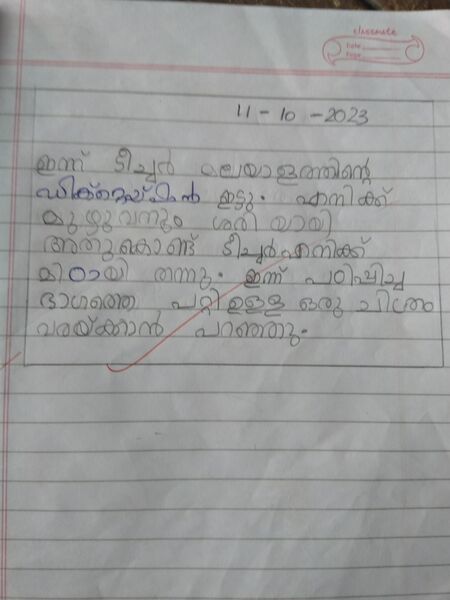 classmate
Date
Page
11-10-2023
ഇന്ന് ടീച്ചർ മലയാളത്തിന്റെ
ഡിക്ടേഷൻ ഇട്ടു. എനിക്ക്
മുഴുവനും ശരി യായി
അതുകൊണ്ട് ടീച്ചർ എനിക്ക്
മിഠായി തന്നു. ഇന്ന് പഠിപ്പിച്ച
ഭാഗത്തെ പറ്റി ഉള്ള ഒരു ചിത്രം
വരയ്ക്കാൻ പറഞ്ഞു.